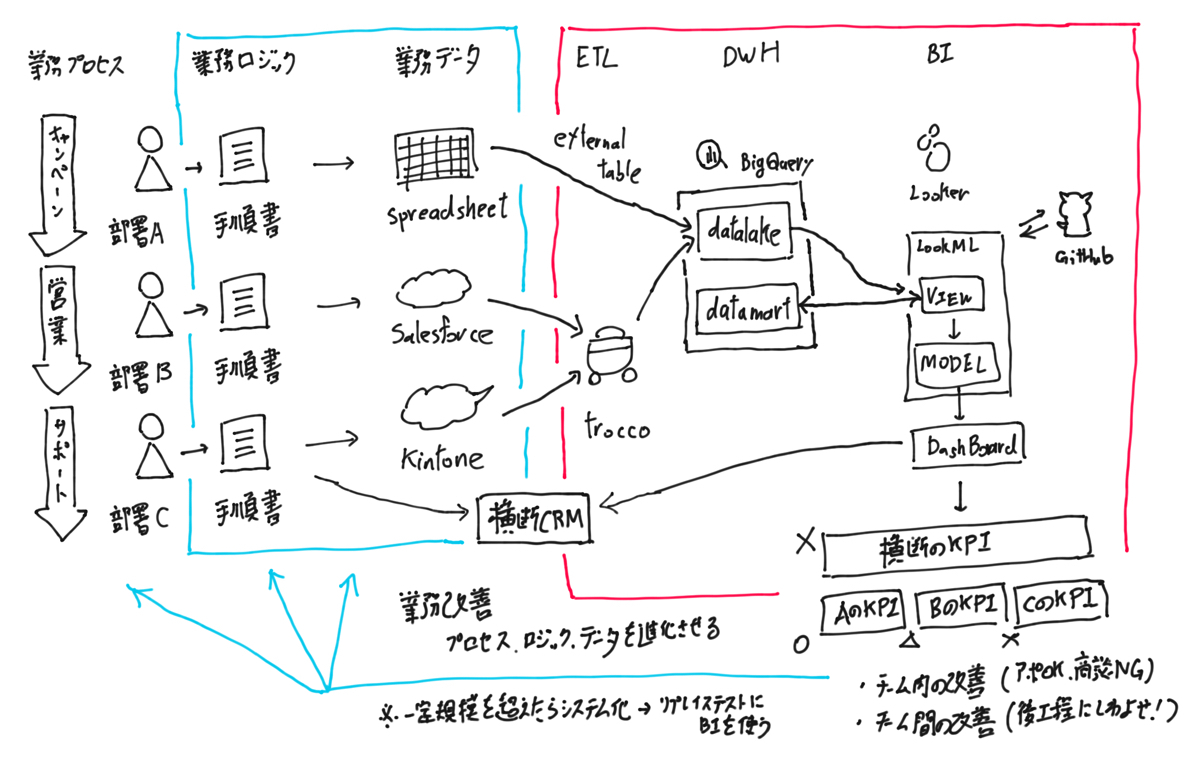 業務プロセス
業務ロジック
業務データ
ETL
DWH
BI
キャンペーン
部署A
手順書
spreadsheet
external
table
BigQuery
Looker
GitHub
datalake
LookML
営業
部署B
手順書
Salesforce
datamart
VIEW
MODEL
サポート
部署C
手順書
Kintone
trocco
DashBoard
横断CRM
横断のKPI
AのKPI
BのKPI
CのKPI
業務改善
プロセス、ロジック、データを進化させる
※一定規模を超えたらシステム化→リプレイステストに
BIを使う
・チーム内の改善（アポOK、商談NG）
・チーム間の改善（後工程にしわよせ！）